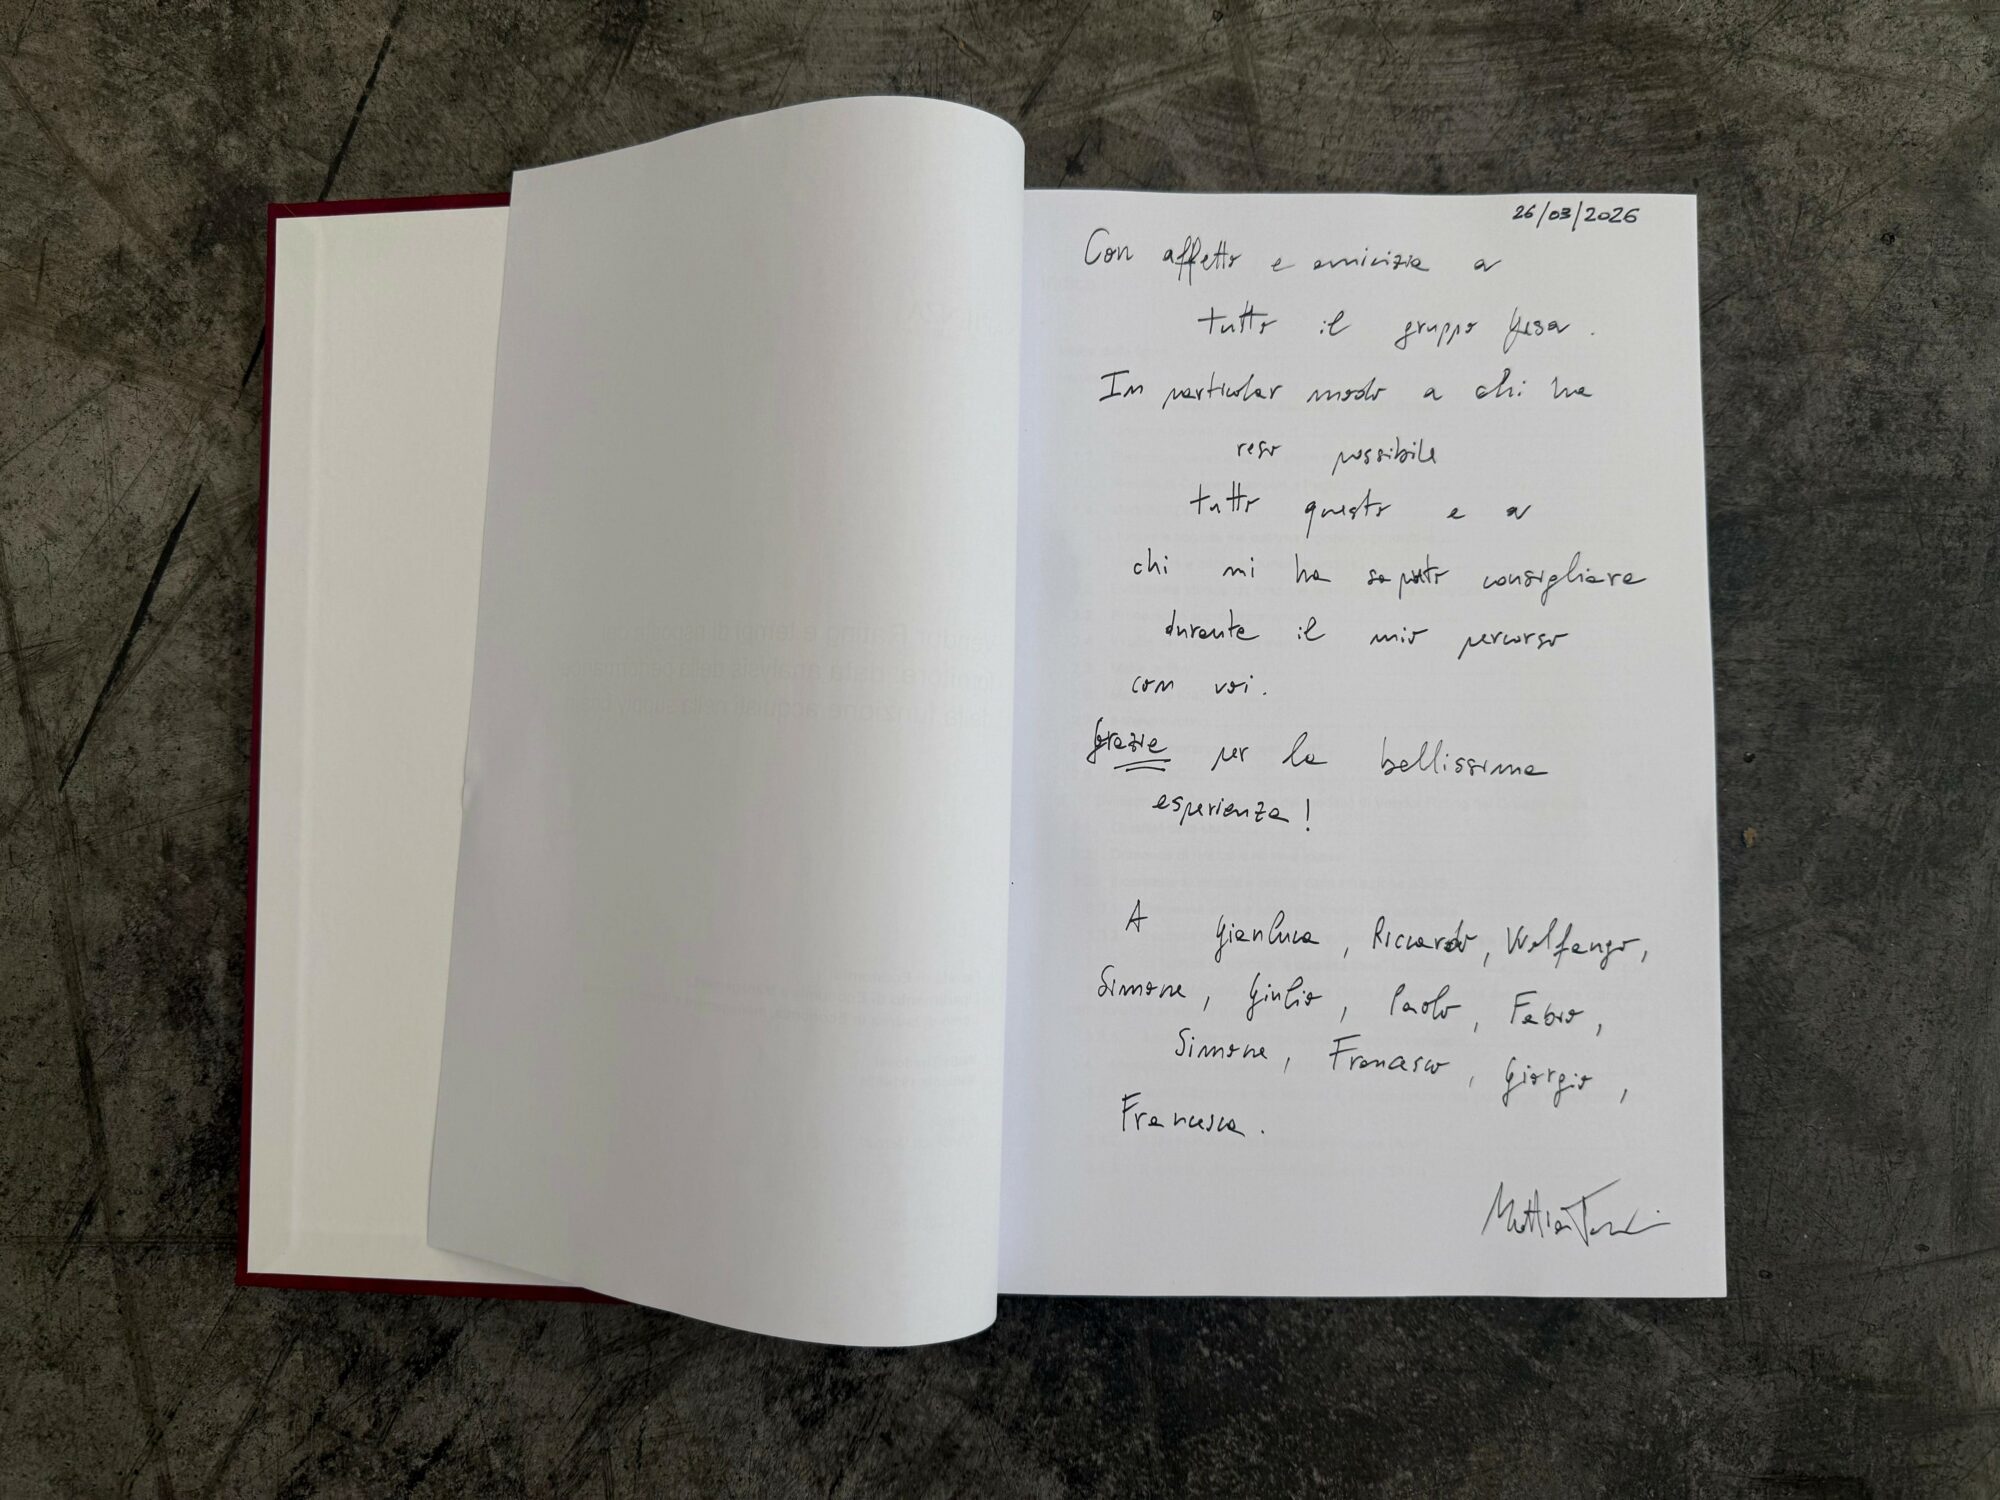 26/03/2026
Con affetto e amicizia a
tutto il gruppo Gesa.
In particolar modo a chi ha
reso possibile
tutto questo e a
chi mi ha saputo consigliare
durante il mio percorso
con voi.
Grazie per la bellissima
esperienza!
A Gianluca, Riccardo, Wolfango,
Simone, Giulio, Paolo, Fabio,
Simone, Francesco, Giorgio,
Francesca.
Mattia